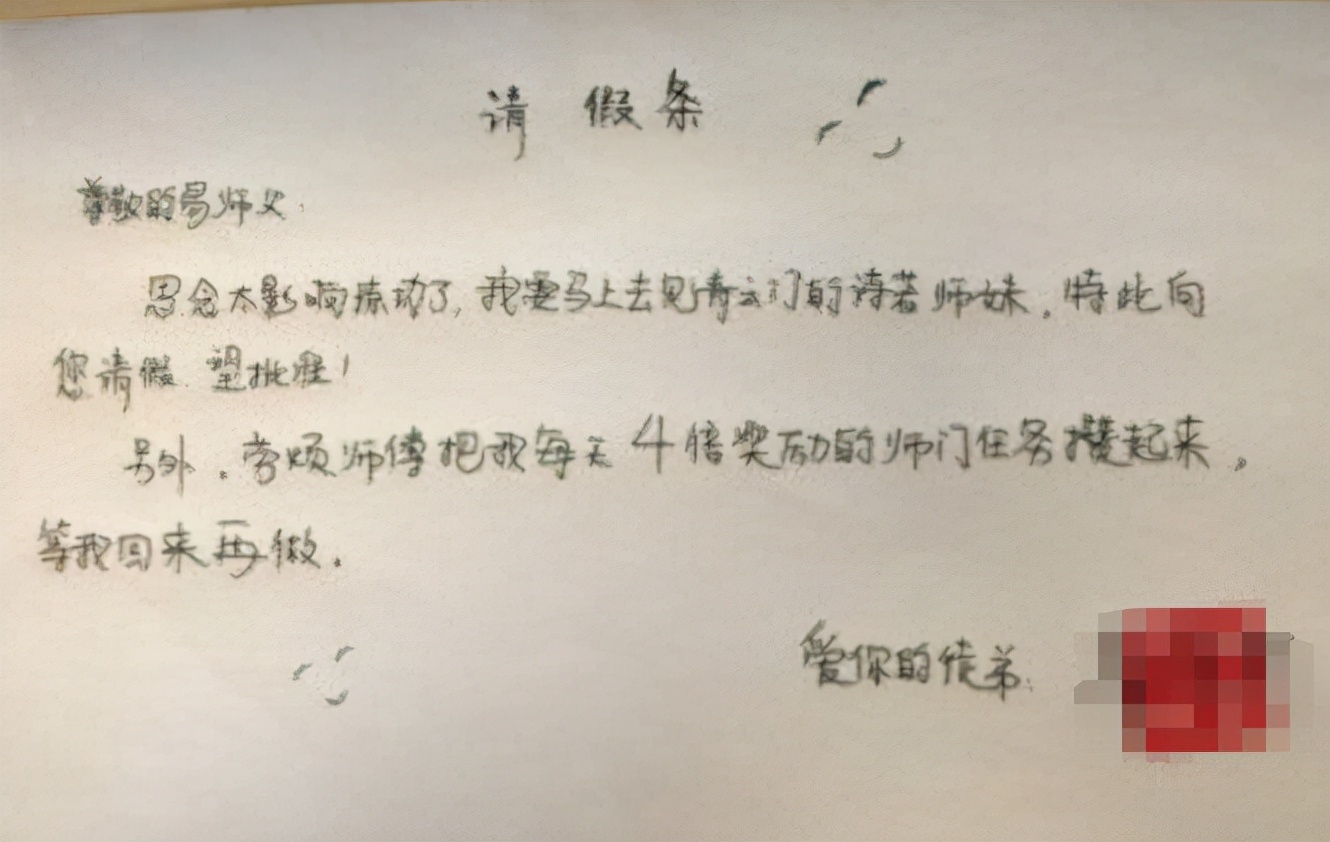 请假条
尊敬的易师父:
思念太影响练功了,我要马上去见青云门的诗若师妹。特此向
您请假.望批准!
另外。劳烦师傅把我每天4倍奖励的师门任务攒起来。
等我回来再做。
爱你的徒弟: